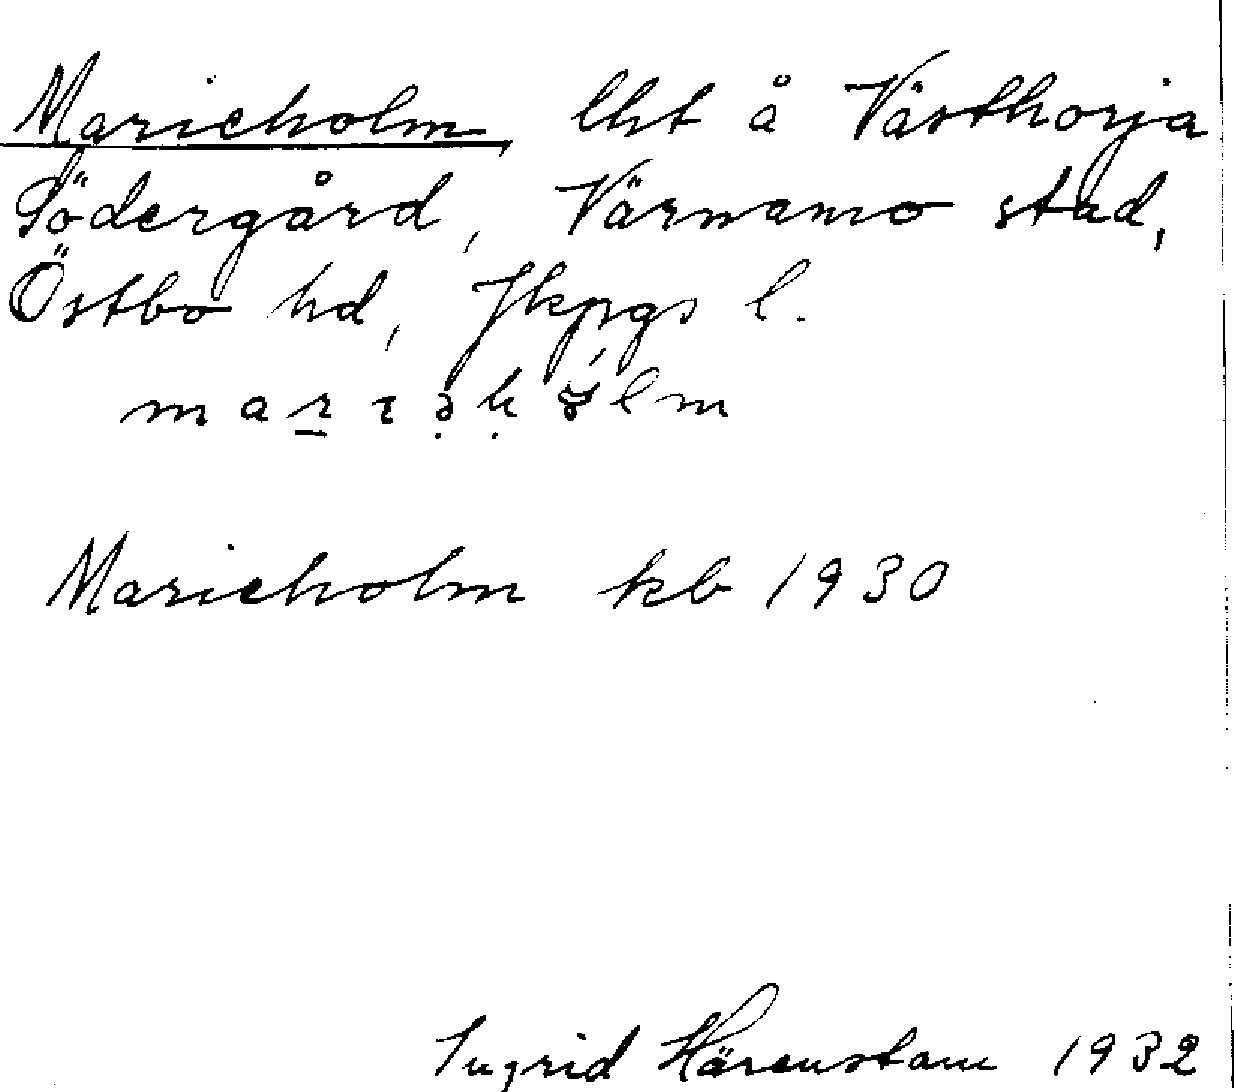 Marieholm lht å Västhorja
Södergård, Värnamo stad,
Östbo hd, Jkpgs l.
Marieholm kb 1930
Ingrid Härenstam 1932